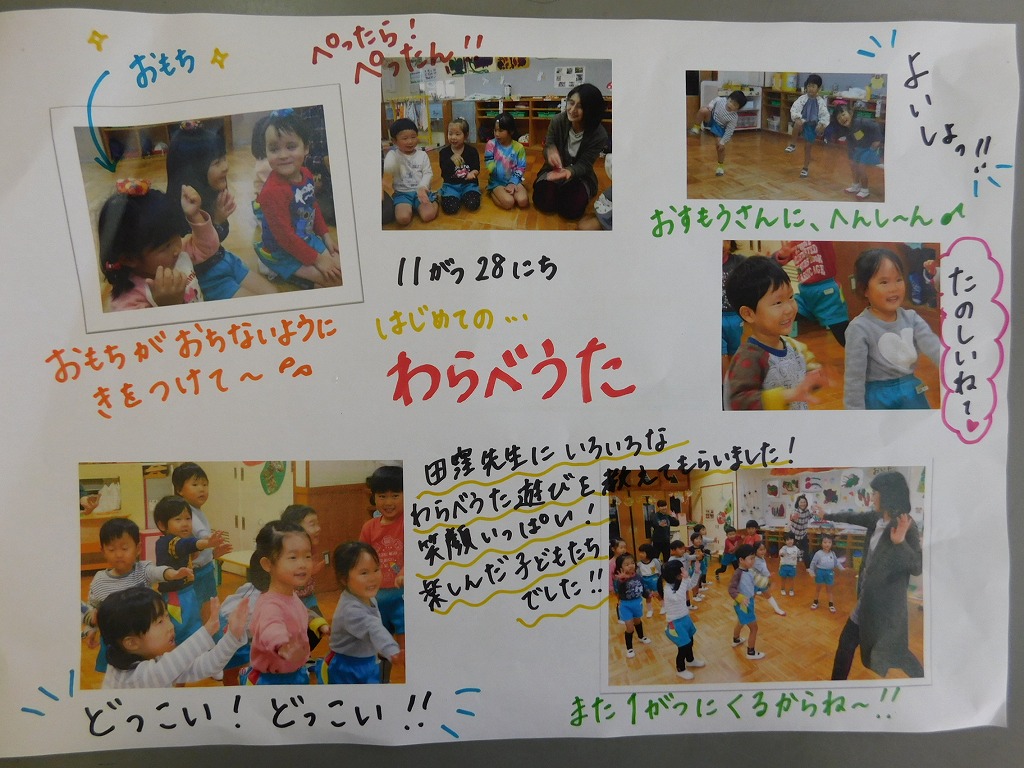 おもち
ぺったら!
ぺったん!!
よいしょっ!!
おすもうさんに、へんし〜ん♪
11がつ28にち
はじめての…
わらべうた
たのしいねぇ♥
おもちがおちないように
きをつけて〜
田窪先生にいろいろな
わらべうた遊びを教えてもらいました!
笑顔いっぱい!
楽しんだ子どもたち
でした!!
どっこい! どっこい!!
また1がつにくるからね〜!!